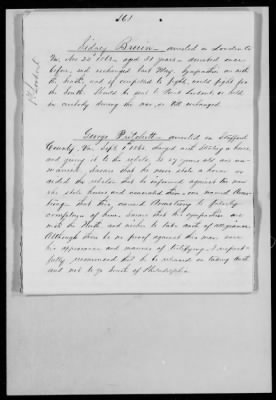 361
Sidney Breen - arrested in Loudon Co
Va, Nov 22d 1862, aged 31 years - arrested once
before, and exchanged last May. Sympathies are with
the South, and if compelled to fight, would fight for
the South. Should be sent to Fort or held
in custody during the war, or till exchanged.
George Pritchett - arrested in Stafford
County, Va, Sept 1862, charged with stealing a horse
and giving it to the rebels, is 27 years old and un-
married. Swears that he never stole a horse or
aided the rebels that he informed against the man
who stole horses and executed them - one named Arms-
trong that this caused Armstrong to falsely
complain of him. Swears that his sympathies are
with the North and wishes to take oath of allegiance.
Although there be no proof against this man save
his appearance and manner of testifying I respect-
fully recommend that he be released on taking oath
and not to go South of Philadelphia